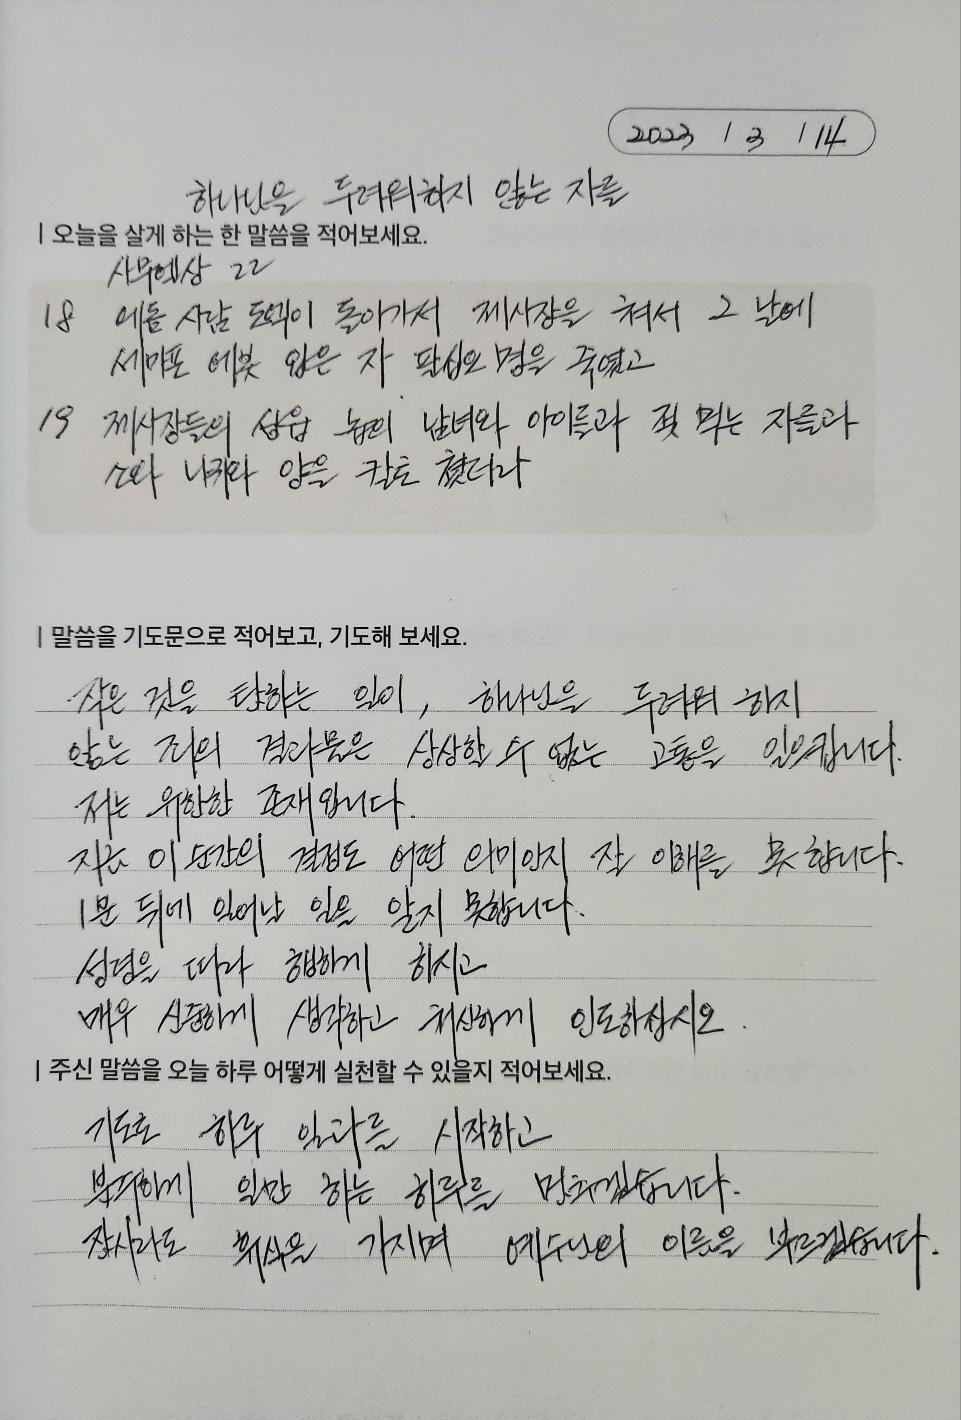 2023 / 3 / 14
하나님을 두려워하지 않는 자를
| 오늘을 살게 하는 한 말씀을 적어보세요.
사무엘상 22
18 에돔 사람 도엑이 돌아가서 제사장을 쳐서 그 날에
세마포 에봇 입은 자 팔십오 명을 죽였고
19 제사장들의 성읍 놉의 남녀와 아이들과 젖 먹는 자들과
소와 나귀와 양을 칼로 쳤더라
| 말씀을 기도문으로 적어보고, 기도해 보세요.
작은 것을 탐하는 일이, 하나님을 두려워 하지
않는 죄의 결과물은 상상할 수 없는 고통을 일으킵니다.
저는 위험한 존재입니다.
지금 이 순간의 결정도 어떤 의미인지 잘 이해를 못 합니다.
1분 뒤에 일어날 일을 알지 못합니다.
성령을 따라 행하게 하시고
매우 신중하게 생각하고 처신하게 인도하십시오.
| 주신 말씀을 오늘 하루 어떻게 실천할 수 있을지 적어보세요.
기도로 하루 일과를 시작하고
분주하게 일만 하는 하루를 멈추겠습니다.
잠시라도 휴식을 가지며 예수님의 이름을 부르겠습니다.